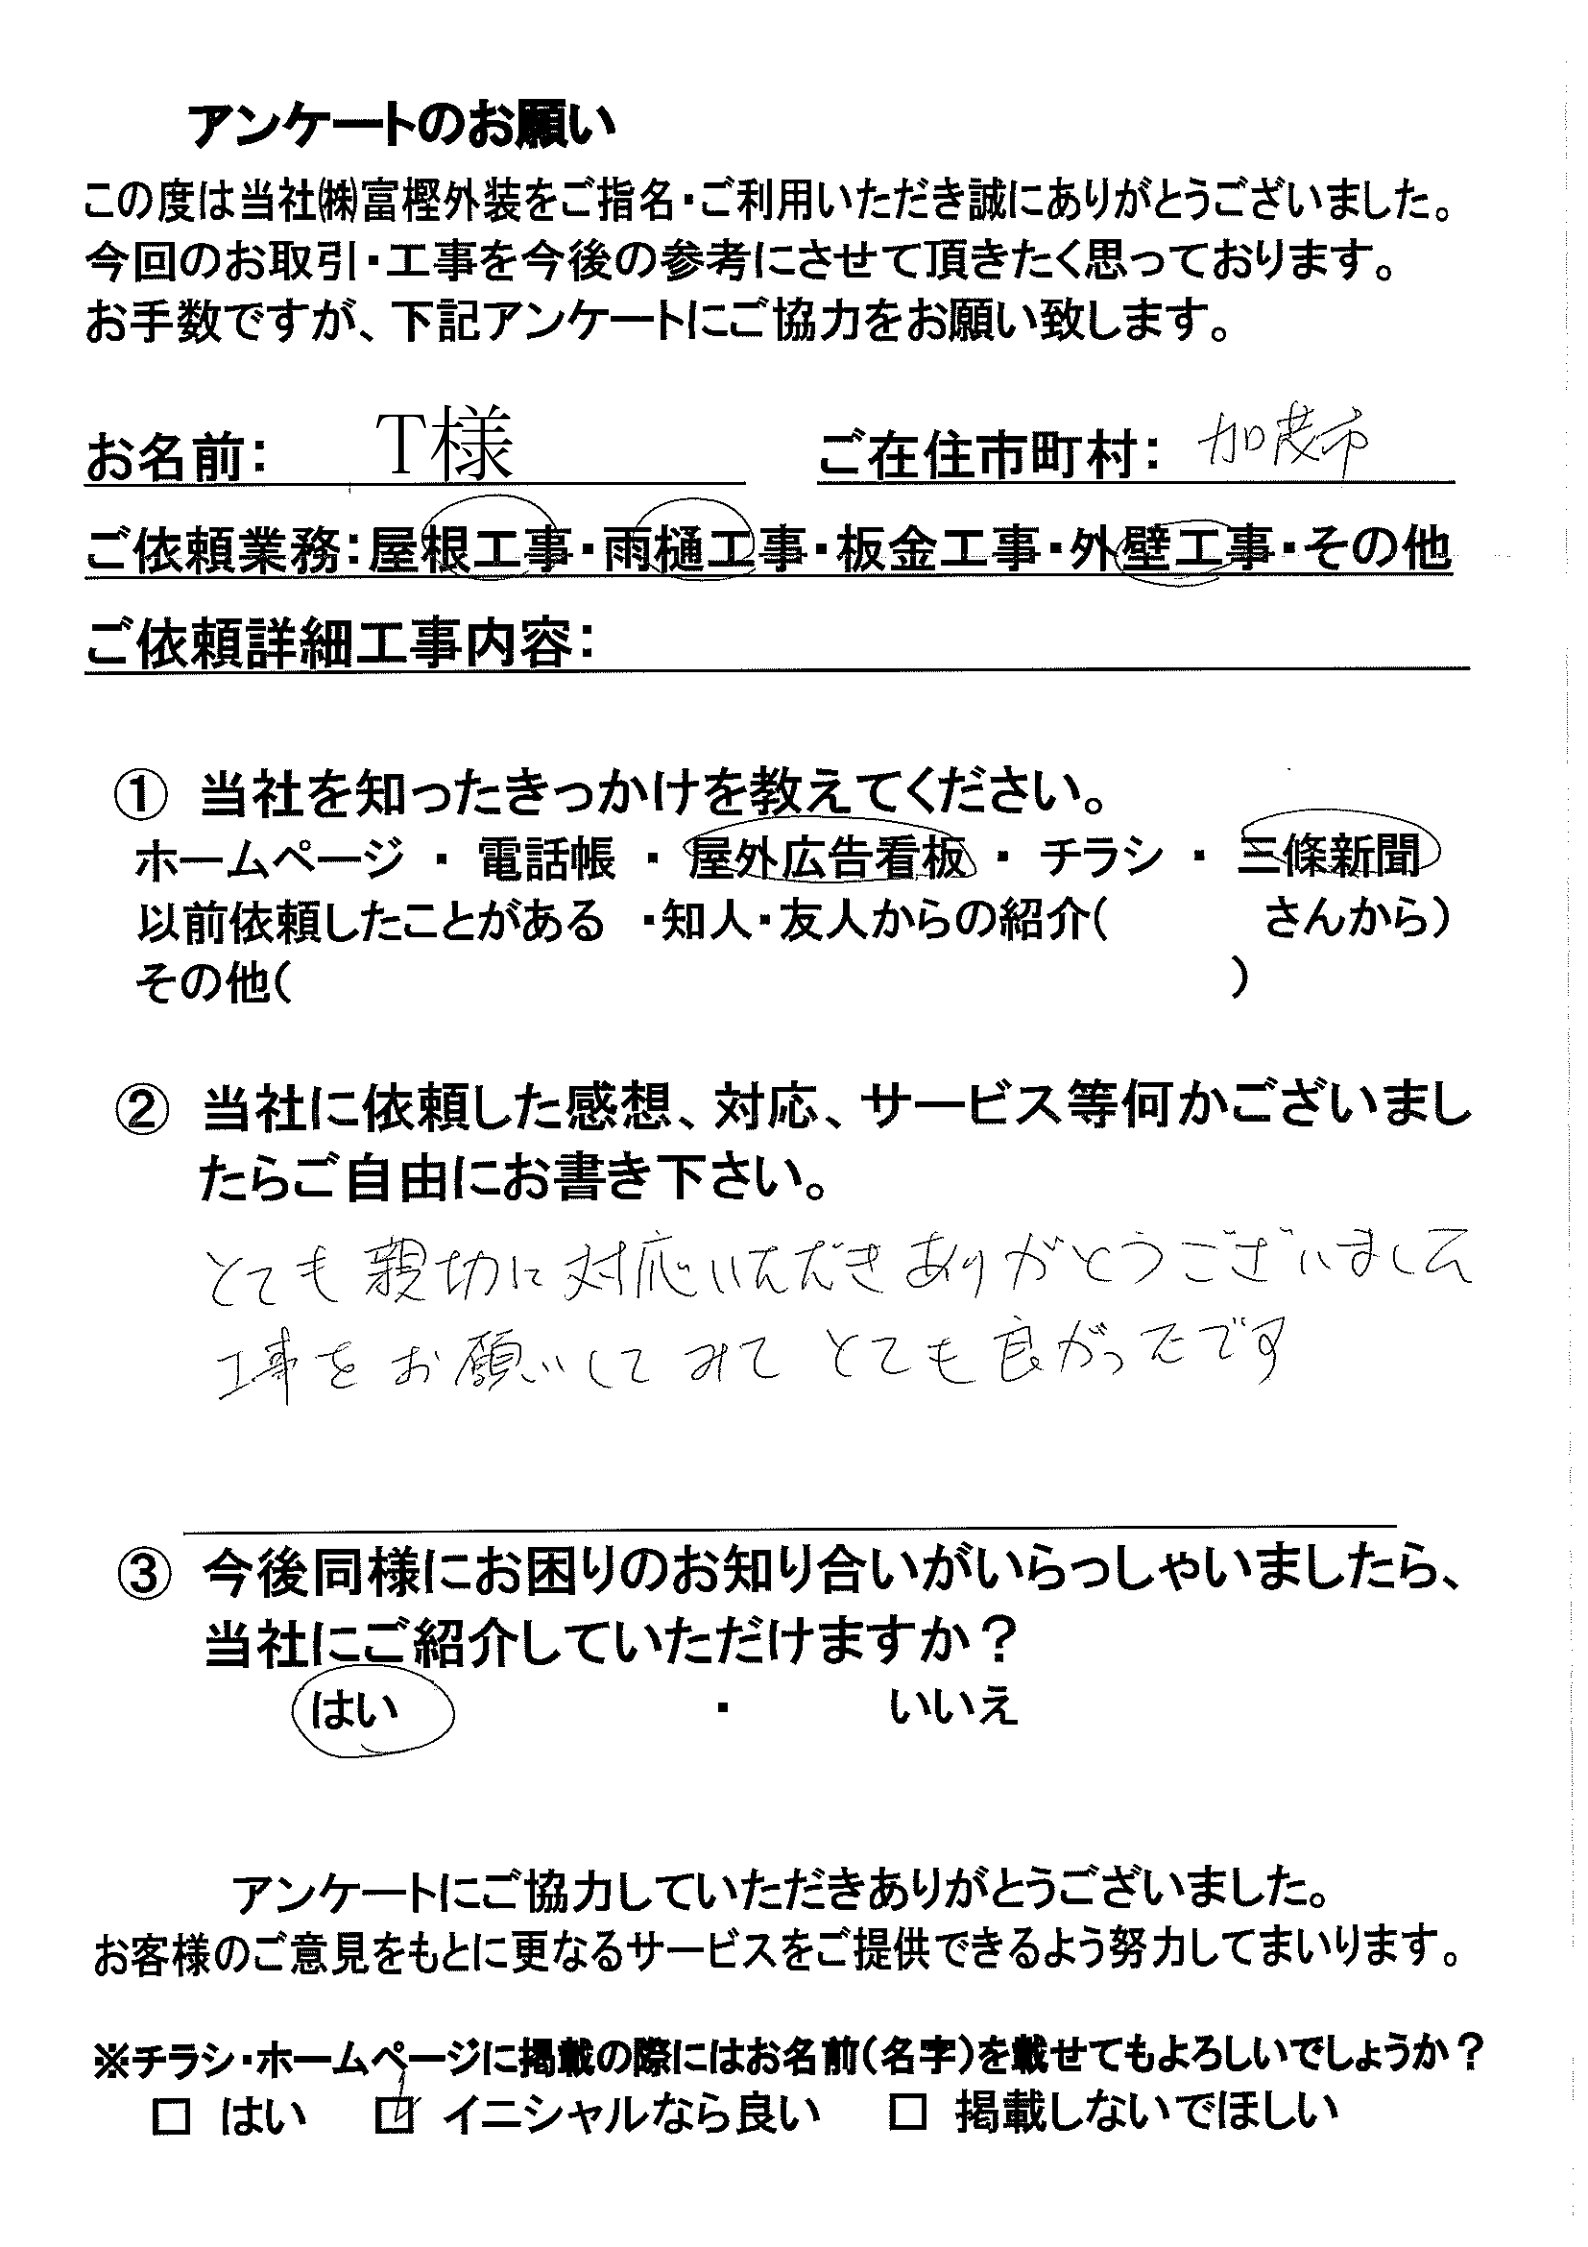 アンケートのお願い
この度は当社㈱富樫外装をご指名・ご利用いただき誠にありがとうございました。
今回のお取引・工事を今後の参考にさせて頂きたく思っております。
お手数ですが、下記アンケートにご協力をお願い致します。
お名前： T様 ご在住市町村： 加茂市
ご依頼業務：屋根工事・雨樋工事・板金工事・外壁工事・その他
ご依頼詳細工事内容：
① 当社を知ったきっかけを教えてください。
ホームページ ・ 電話帳 ・ 屋外広告看板 ・ チラシ ・ 三條新聞
以前依頼したことがある ・知人・友人からの紹介( さんから)
その他( )
② 当社に依頼した感想、対応、サービス等何かございまし
たらご自由にお書き下さい。
とても親切に対応いただきありがとうございました
工事をお願いしてみてとても良かったです
③ 今後同様にお困りのお知り合いがいらっしゃいましたら、
当社にご紹介していただけますか？
はい ・ いいえ
アンケートにご協力していただきありがとうございました。
お客様のご意見をもとに更なるサービスをご提供できるよう努力してまいります。
※チラシ・ホームページに掲載の際にはお名前(名字)を載せてもよろしいでしょうか？
□ はい ☑ イニシャルなら良い □ 掲載しないでほしい